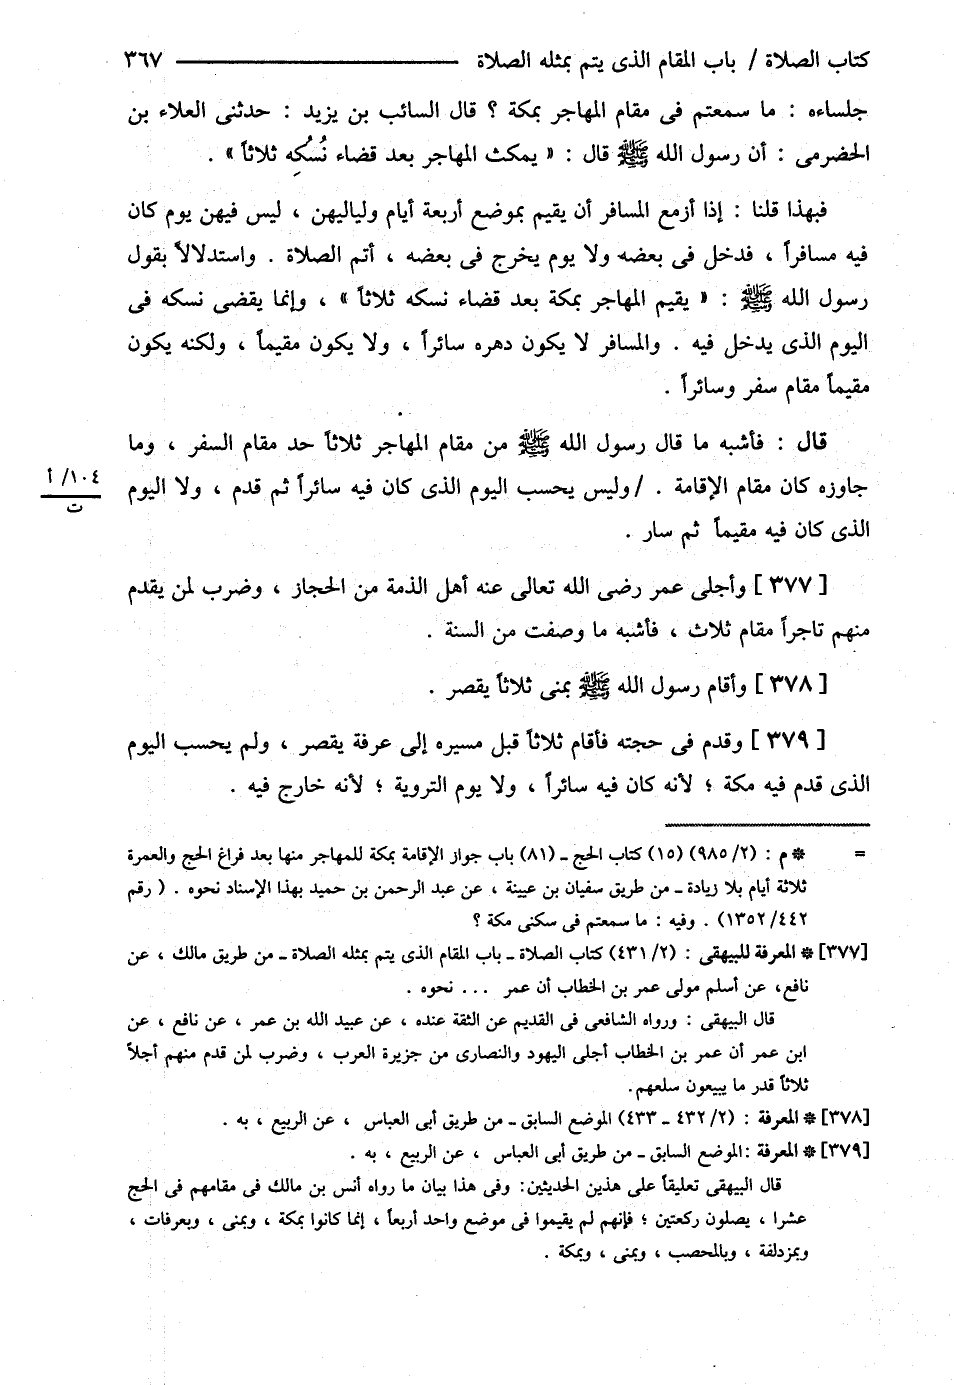 كتاب الصلاة / باب المقام الذى يتم بمثله الصلاة ٣٦٧
جلساءه : ما سمعتم فى مقام المهاجر بمكة ؟ قال السائب بن يزيد : حدثنى العلاء بن
الحضرمى : أن رسول الله ﷺ قال : « يمكث المهاجر بعد قضاء نُسُكِه ثلاثاً » .
فبهذا قلنا : إذا أزمع المسافر أن يقيم بموضع أربعة أيام ولياليهن ، ليس فيهن يوم كان
فيه مسافراً ، فدخل فى بعضه ولا يوم يخرج فى بعضه ، أتم الصلاة . واستدلالاً بقول
رسول الله ﷺ : « يقيم المهاجر بمكة بعد قضاء نسكه ثلاثاً » ، وإنما يقضى نسكه فى
اليوم الذى يدخل فيه . والمسافر لا يكون دهره سائراً ، ولا يكون مقيماً ، ولكنه يكون
مقيماً مقام سفر وسائراً .
قال : فأشبه ما قال رسول الله ﷺ من مقام المهاجر ثلاثاً حد مقام السفر ، وما
جاوزه كان مقام الإقامة . / وليس يحسب اليوم الذى كان فيه سائراً ثم قدم ، ولا اليوم
١٠٤/ أ
ت
الذى كان فيه مقيماً ثم سار .
[ ٣٧٧ ] وأجلى عمر رضى الله تعالى عنه أهل الذمة من الحجاز ، وضرب لمن يقدم
منهم تاجراً مقام ثلاث ، فأشبه ما وصفت من السنة .
[ ٣٧٨ ] وأقام رسول الله ﷺ بمنى ثلاثاً يقصر .
[ ٣٧٩ ] وقدم فى حجته فأقام ثلاثاً قبل مسيره إلى عرفة يقصر ، ولم يحسب اليوم
الذى قدم فيه مكة ؛ لأنه كان فيه سائراً ، ولا يوم التروية ؛ لأنه خارج فيه .
= * م : (٢/ ٩٨٥) (١٥) كتاب الحج ـ (٨١) باب جواز الإقامة بمكة للمهاجر منها بعد فراغ الحج والعمرة
ثلاثة أيام بلا زيادة ـ من طريق سفيان بن عيينة ، عن عبد الرحمن بن حميد بهذا الإسناد نحوه . ( رقم
٤٤٢/ ١٣٥٢) . وفيه : ما سمعتم فى سكنى مكة ؟
[٣٧٧] * المعرفة للبيهقى : (٢/ ٤٣١) كتاب الصلاة ـ باب المقام الذى يتم بمثله الصلاة ـ من طريق مالك ، عن
نافع، عن أسلم مولى عمر بن الخطاب أن عمر ... نحوه .
قال البيهقى : ورواه الشافعى فى القديم عن الثقة عنده ، عن عبيد الله بن عمر ، عن نافع ، عن
ابن عمر أن عمر بن الخطاب أجلى اليهود والنصارى من جزيرة العرب ، وضرب لمن قدم منهم أجلاً
ثلاثاً قدر ما يبيعون سلعهم.
[٣٧٨] * المعرفة : (٢/ ٤٣٢ ـ ٤٣٣) الموضع السابق ـ من طريق أبى العباس ، عن الربيع ، به .
[٣٧٩] * المعرفة :الموضع السابق ـ من طريق أبى العباس ، عن الربيع ، به .
قال البيهقى تعليقاً على هذين الحديثين: وفى هذا بيان ما رواه أنس بن مالك فى مقامهم فى الحج
عشرا ، يصلون ركعتين ؛ فإنهم لم يقيموا فى موضع واحد أربعاً ، إنما كانوا بمكة ، وبمنى ، وبعرفات ،
وبمزدلفة ، وبالمحصب ، وبمنى ، وبمكة .